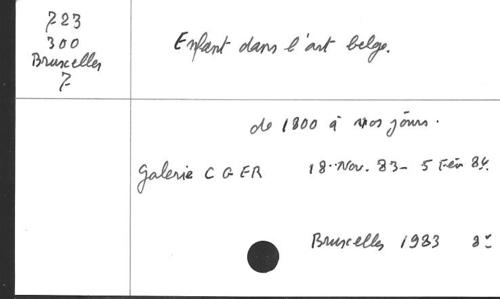 723
300
Bruxelles
7
Enfant dans l'art belge.
de 1800 à nos jours.
Galerie C G E R 18.Nov. 83 - 5 Fév 84.
Bruxelles 1983 8°